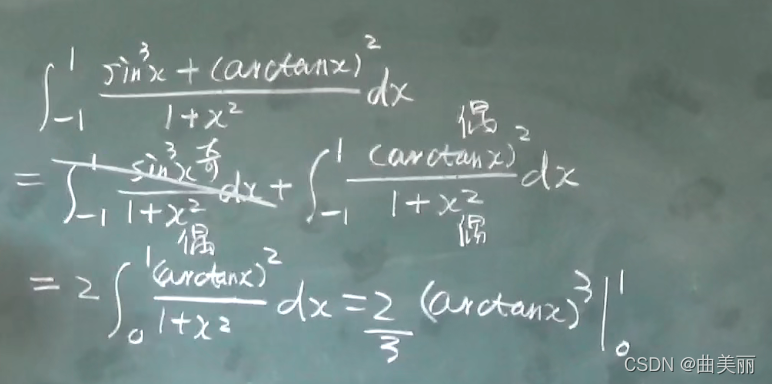 ∫_{-1}^{1} \frac{sin³x + (arctanx)²}{1+x²} dx
= ∫_{-1}^{1} \frac{sin³x 奇}{1+x² 偶} dx + ∫_{-1}^{1} \frac{(arctanx)² 偶}{1+x² 偶} dx
= 2 ∫_{0}^{1} \frac{(arctanx)²}{1+x²} dx = \frac{2}{3} (arctanx)³ |_{0}^{1}
CSDN @曲美丽